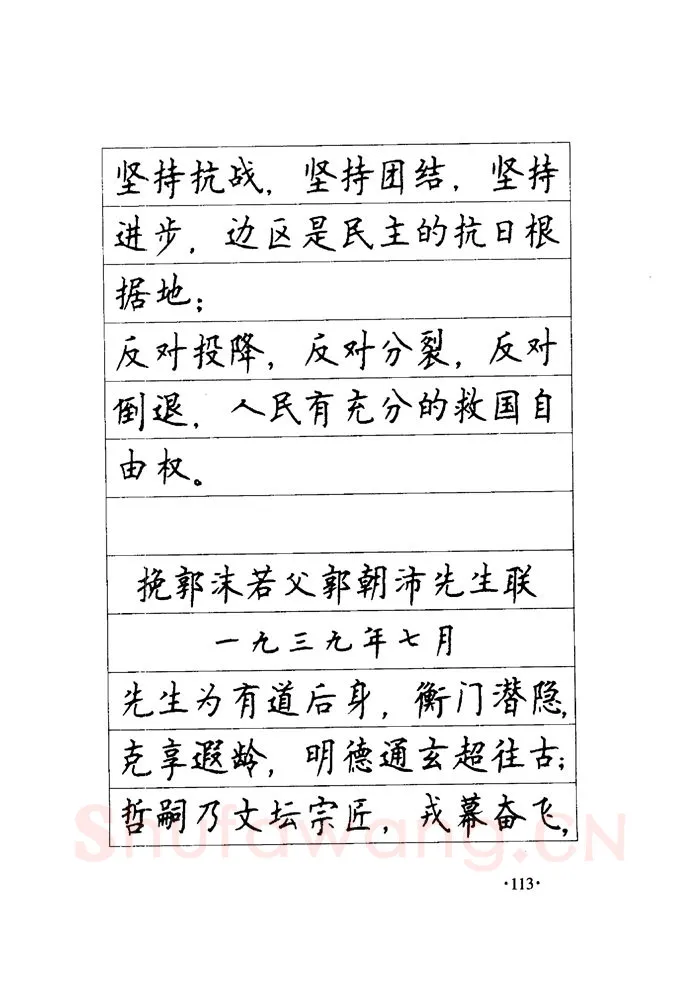 坚持抗战，坚持团结，坚持
进步，边区是民主的抗日根
据地；
反对投降，反对分裂，反对
倒退，人民有充分的救国自
由权。
挽郭沫若父郭朝沛先生联
一九三九年七月
先生为有道后身，衡门潜隐，
克享遐龄，明德通玄超往古；
哲嗣乃文坛宗匠，戎幕奋飞，
Shufawang.CN
·113·